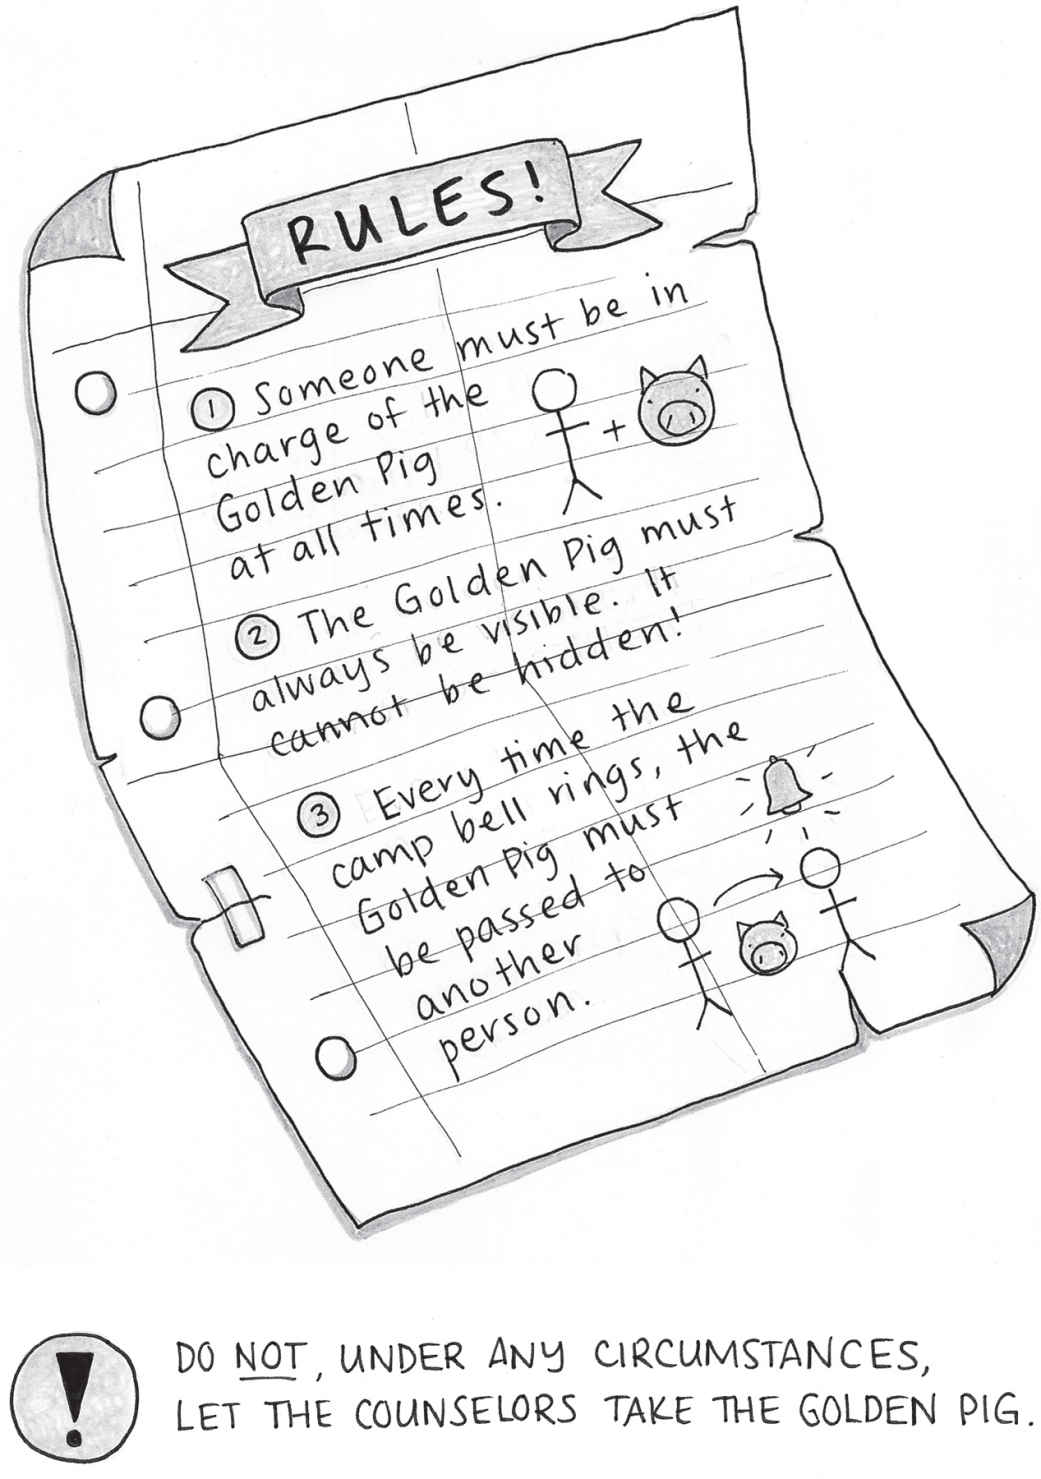 RULES!
① Someone must be in
charge of the
Golden Pig
at all times.
② The Golden Pig must
always be visible. It
cannot be hidden!
③ Every time the
camp bell rings, the
Golden Pig must
be passed to
another
person.
DO NOT, UNDER ANY CIRCUMSTANCES,
LET THE COUNSELORS TAKE THE GOLDEN PIG.